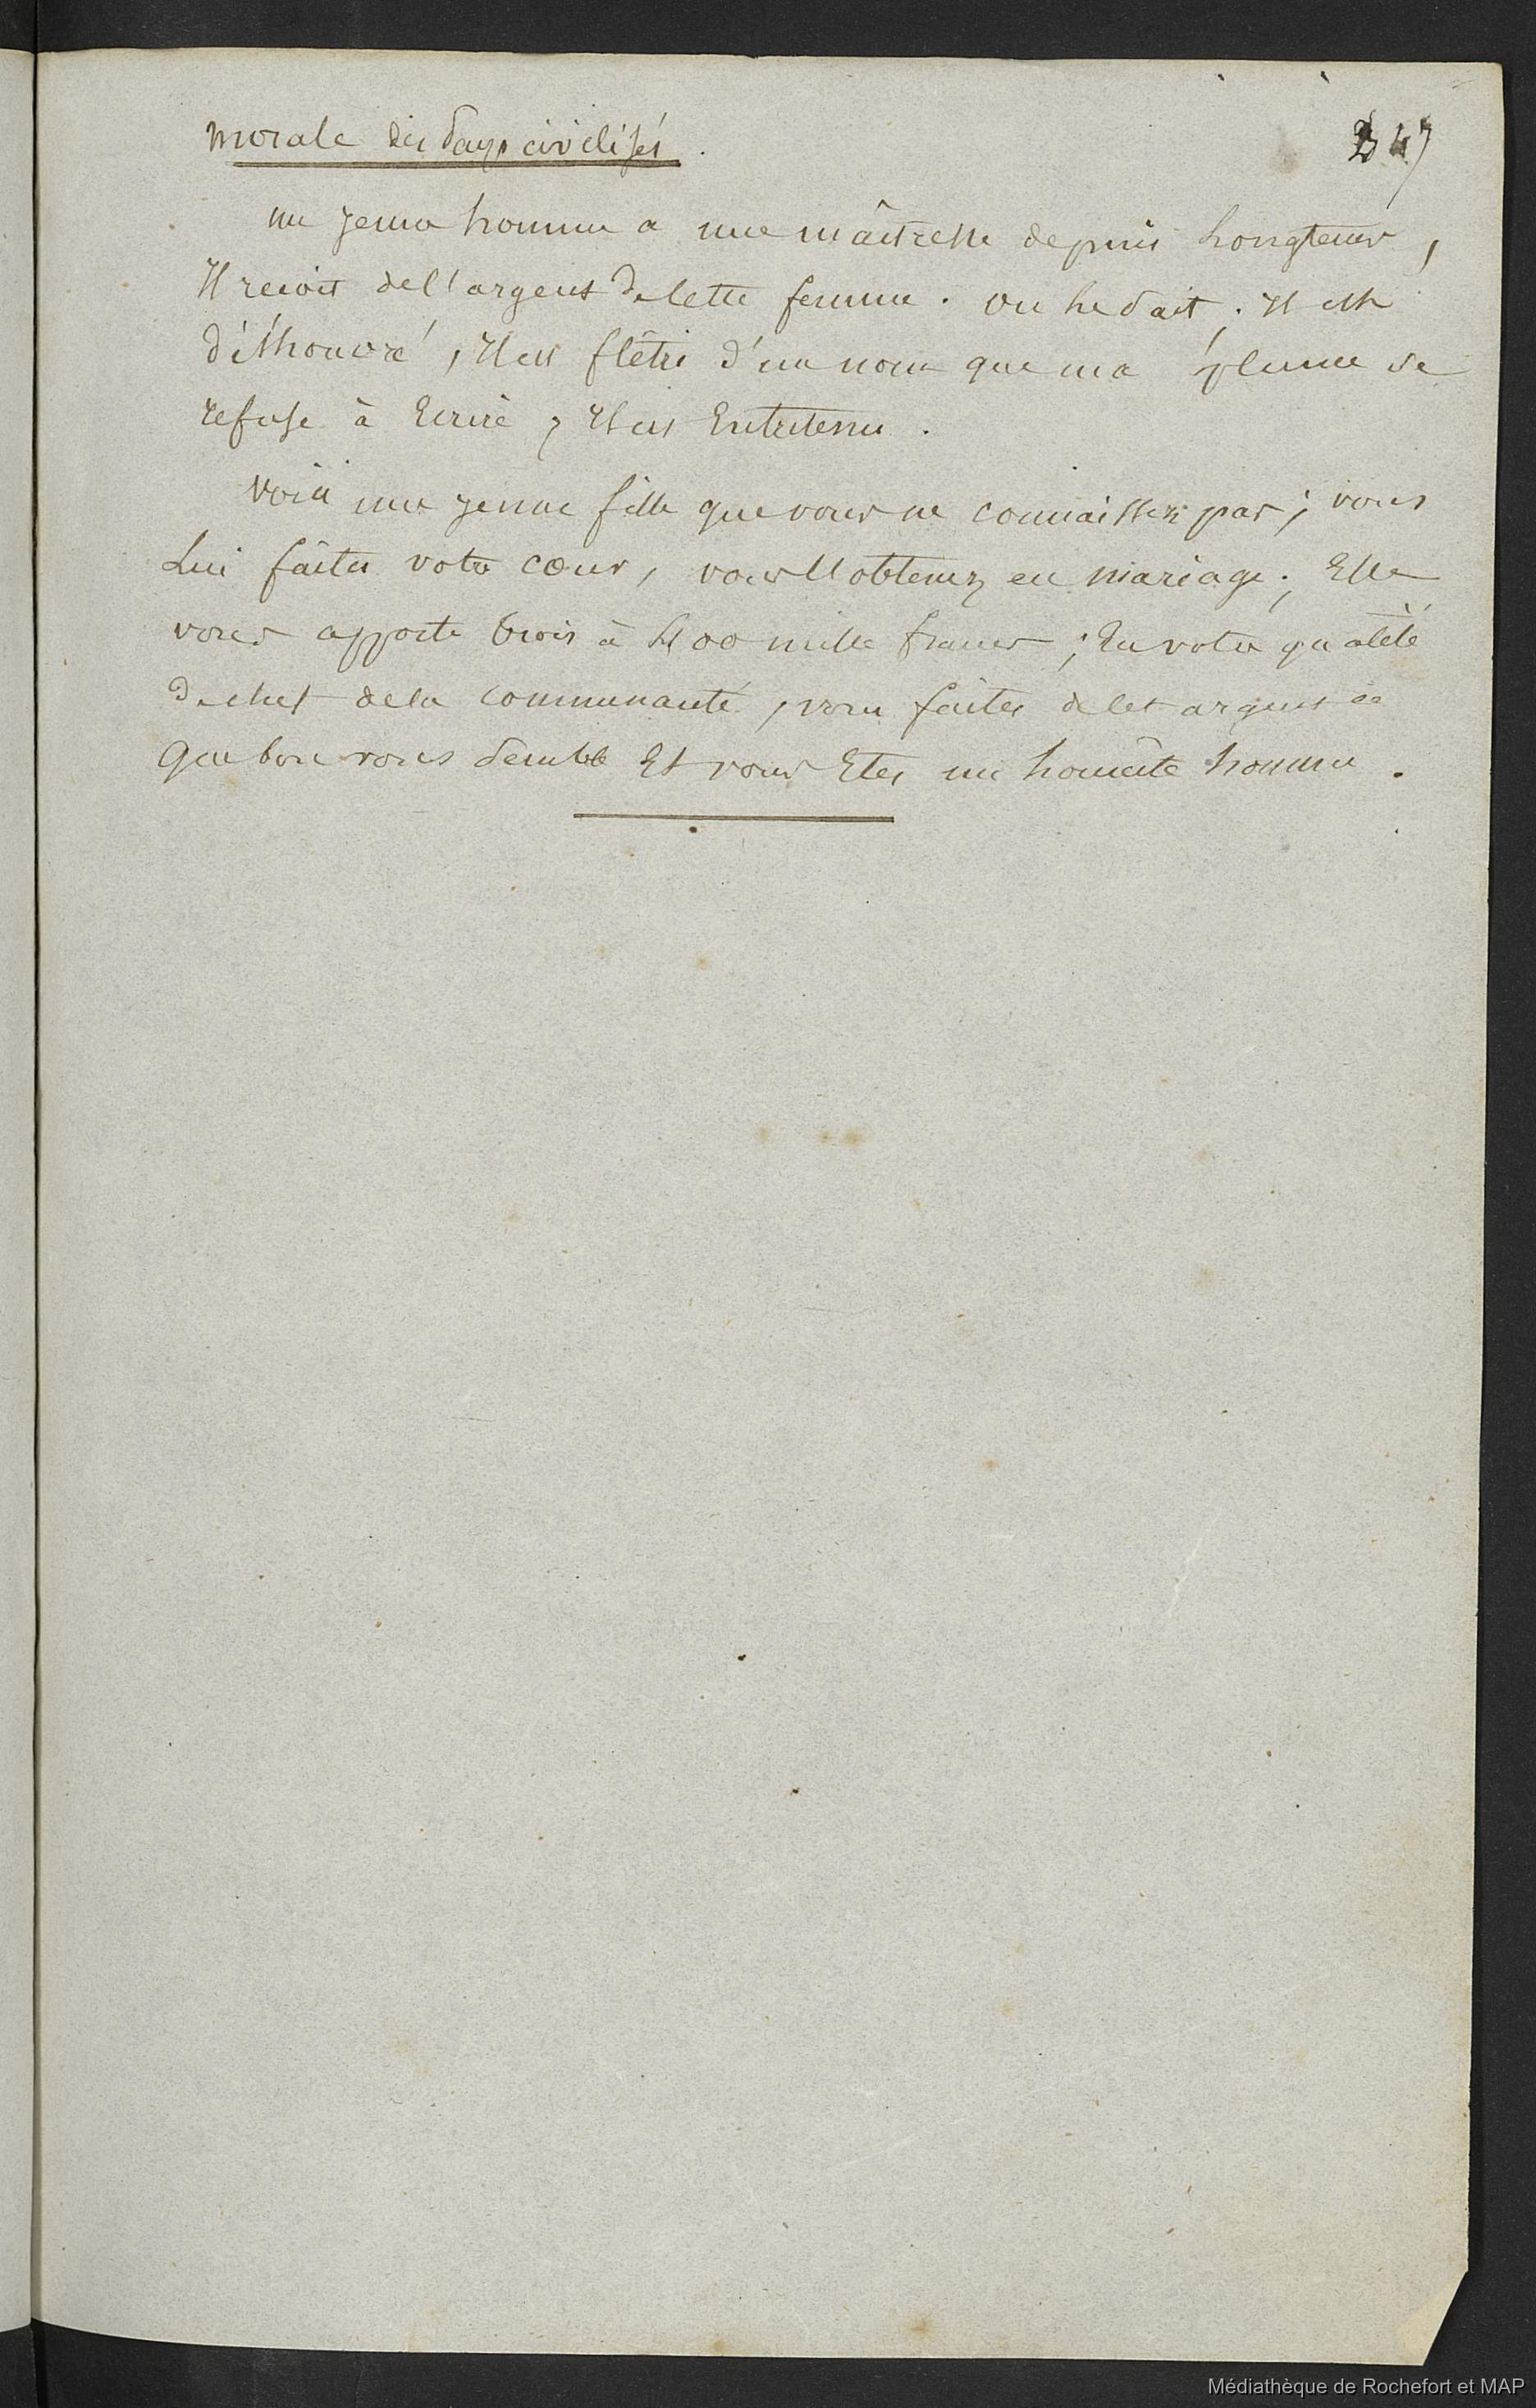 morale des Pays civilisés.
347
un jeune homme a une maitresse depuis Longtems,
Il recoit de l'argent de Cette femme. on Le sait; Il est
déshonoré, Il est flêtri d'un nom que ma plume se
refuse à Ecrire, Il est Entretenu.
Voici une jeune fille que vous ne connaissez pas; vous
Lui faites votre cour, vous l'obtenez en mariage; Elle
vous apporte trois à 400 mille francs; En votre qualité
de chef de la communauté, vous faites de Cet argent ce
que bon vous semble Et vous Etes un honnête homme.
Médiathèque de Rochefort et MAP